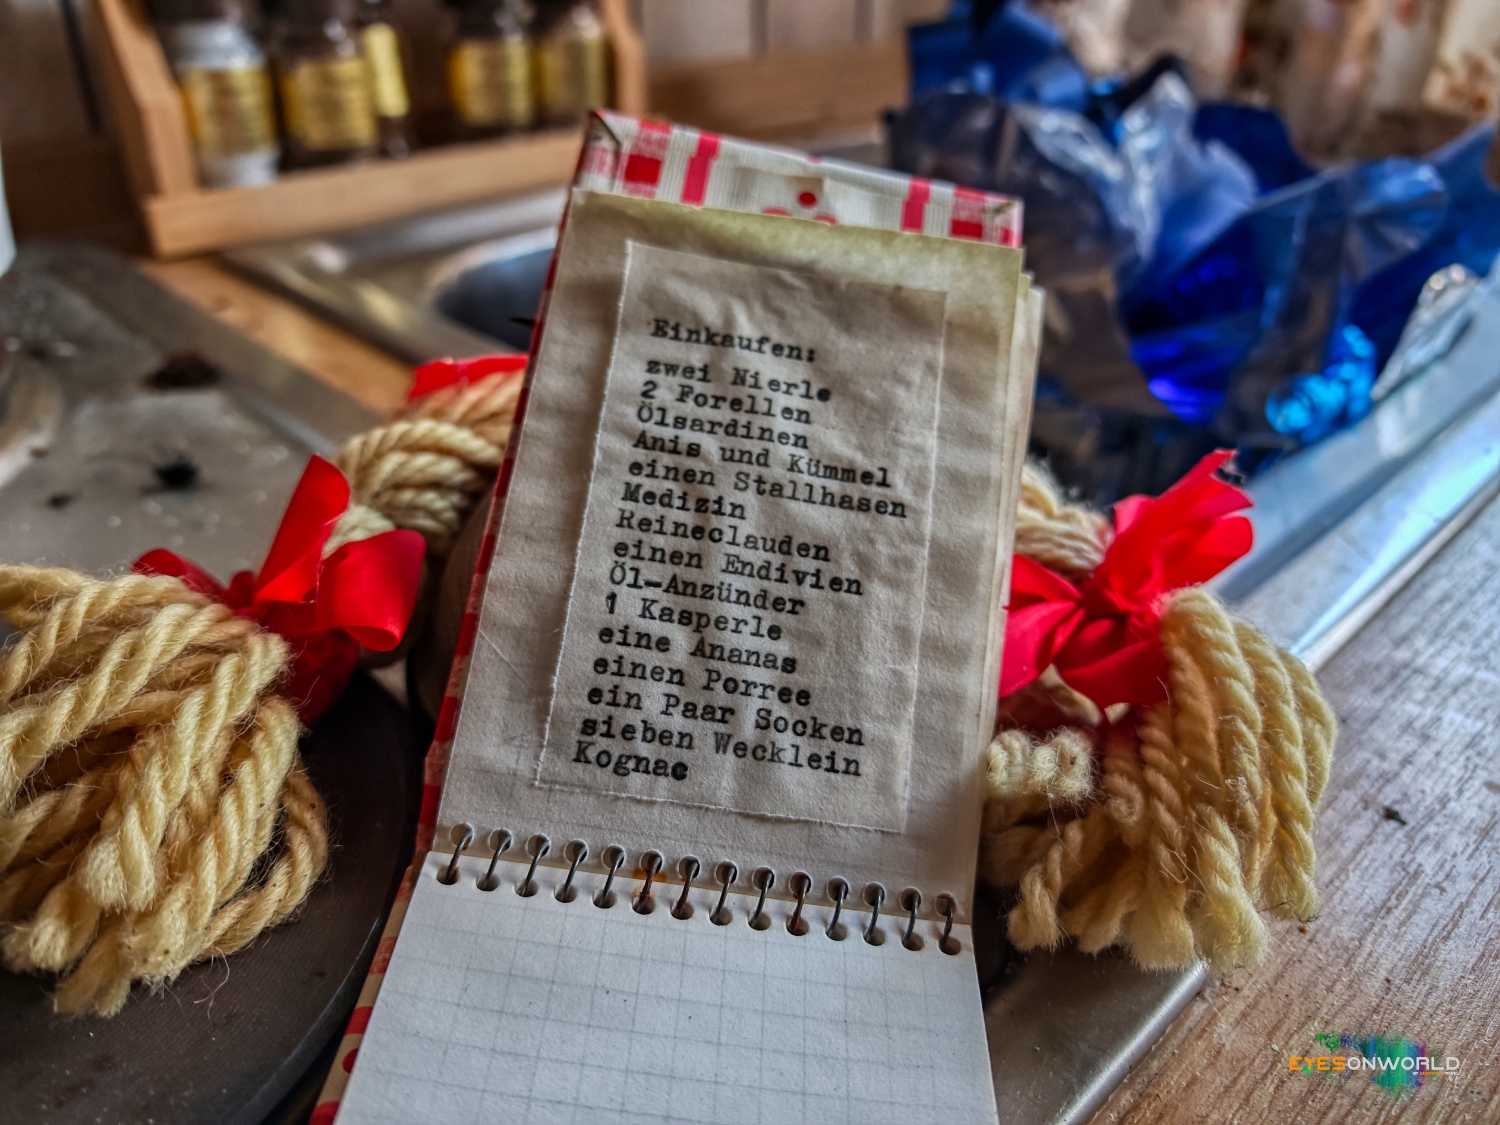 Einkaufen:
zwei Nierle
2 Forellen
Ölsardinen
Anis und Kümmel
einen Stallhasen
Medizin
Reineclauden
einen Endivien
Öl-Anzünder
1 Kasperle
eine Ananas
einen Porree
ein Paar Socken
sieben Wecklein
Kognac
EYESONWORLD